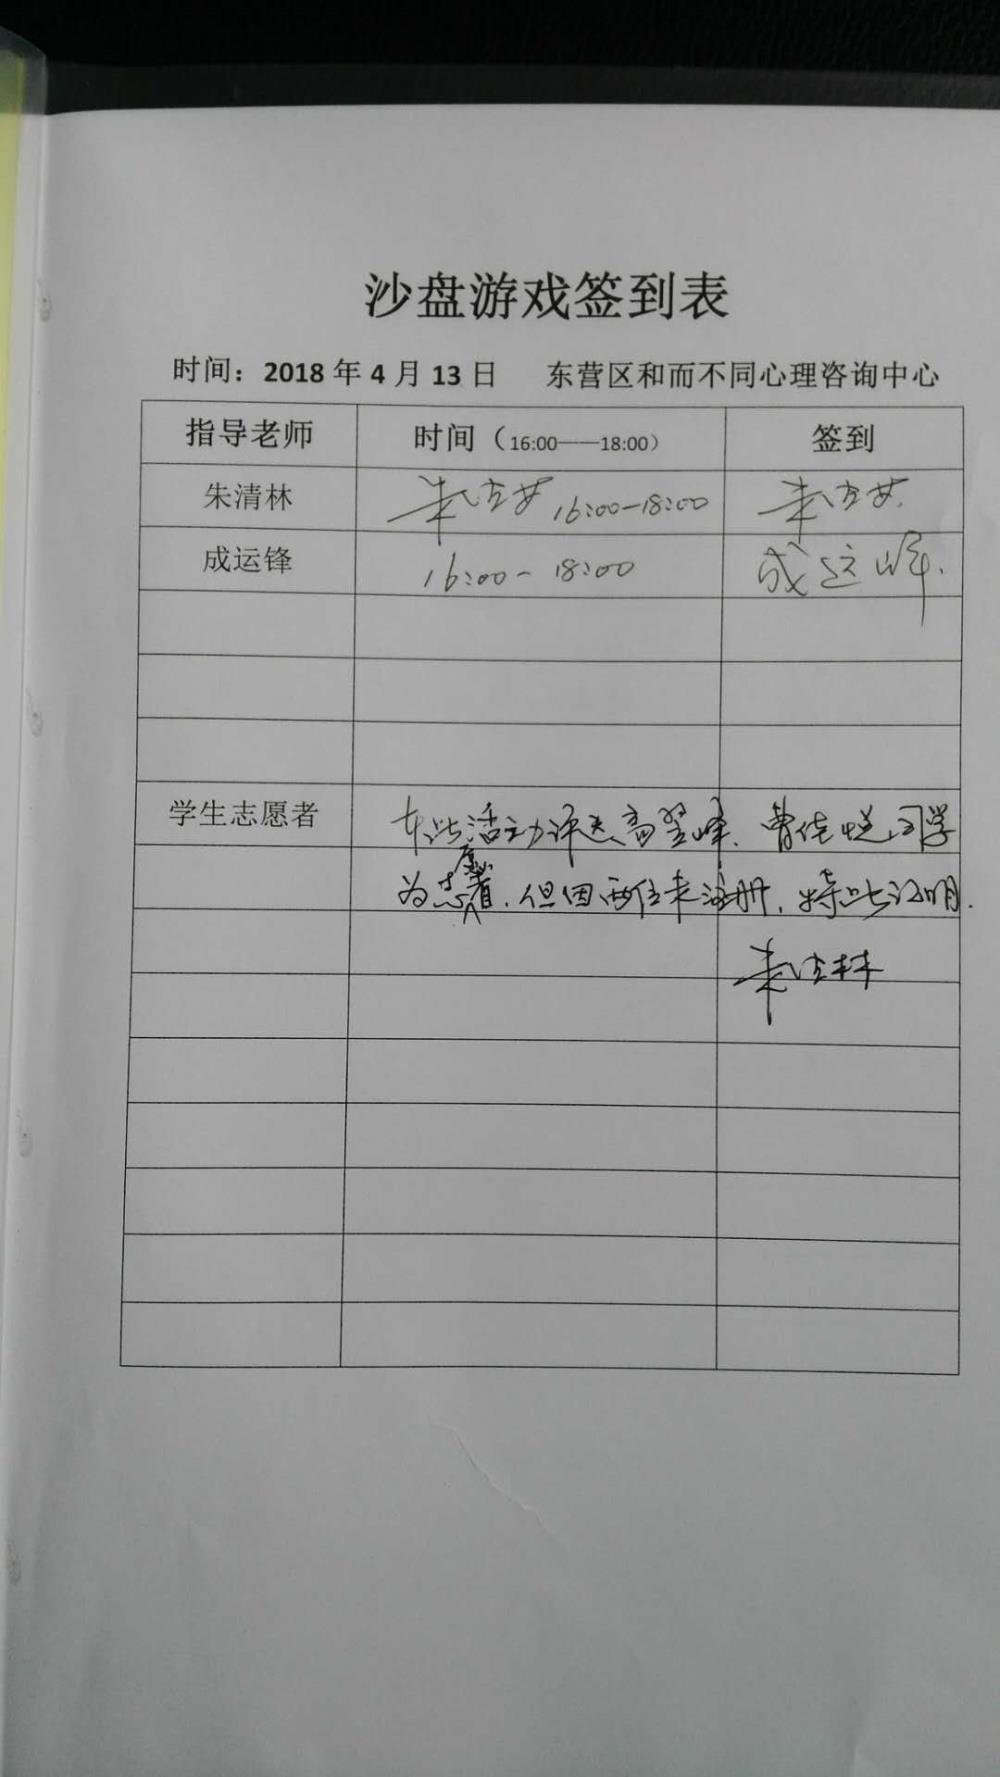 沙盘游戏签到表
时间：2018年4月13日 东营区和而不同心理咨询中心
指导老师 时间（16:00——18:00） 签到
朱清林 朱清林 16:00-18:00 朱清林
成运锋 16:00-18:00 成运峰.
学生志愿者 本次活动评选高翌峰、曾佳悦同学
为志愿者，但因两位未注册，特此证明.
朱清林